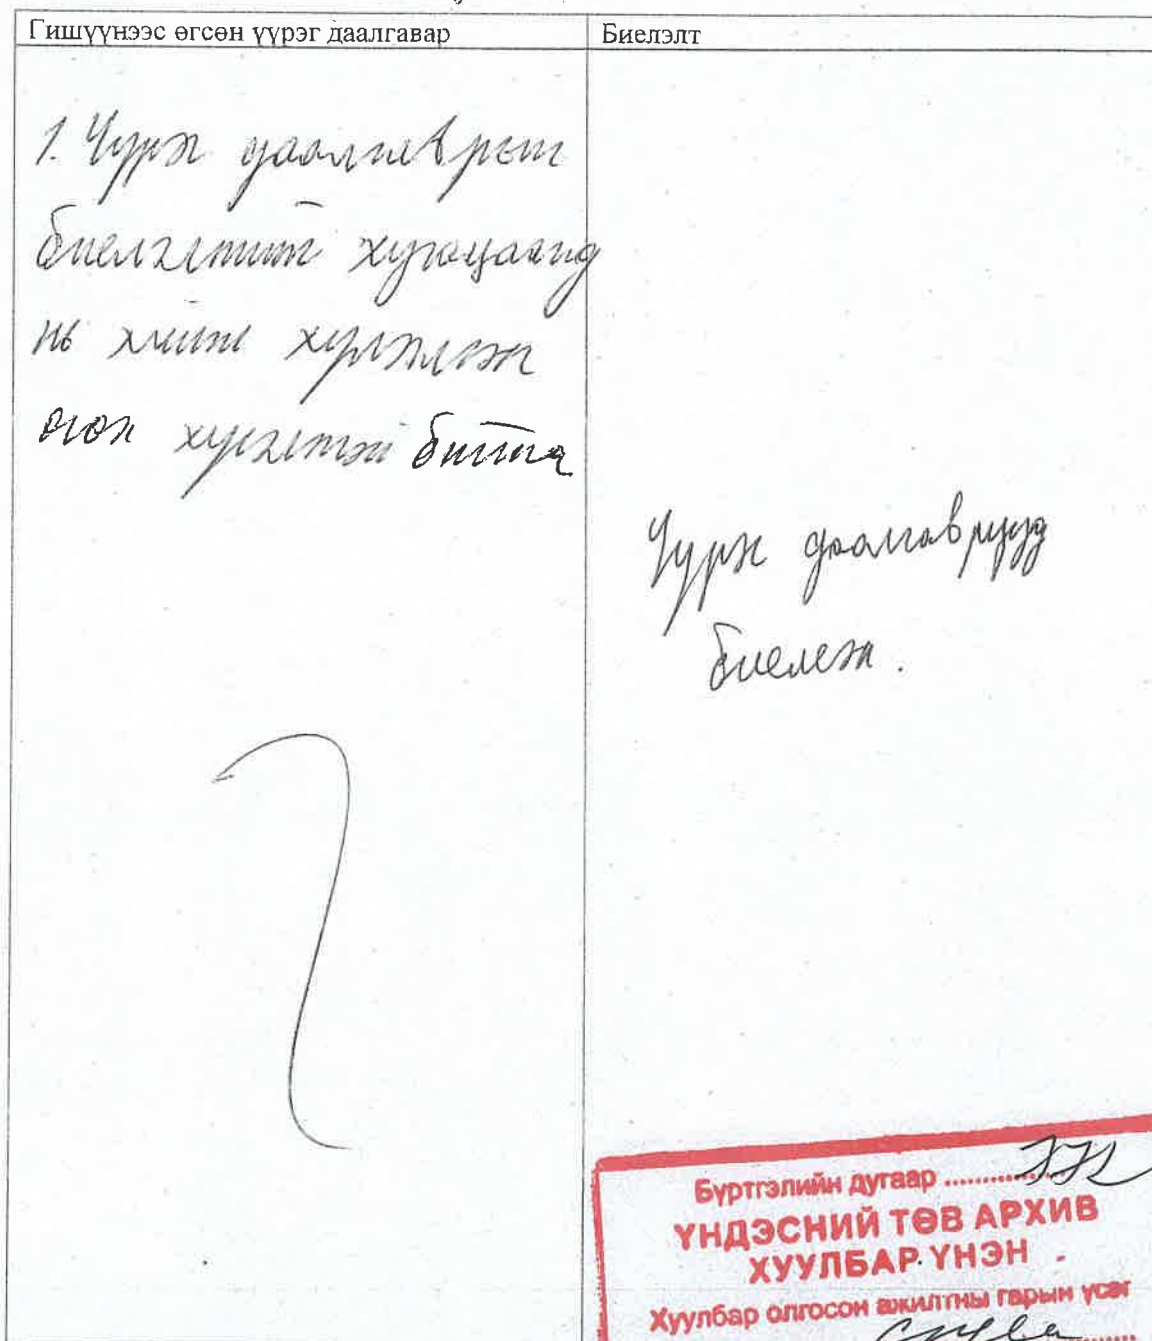 Гишүүнээс өгсөн үүрэг даалгавар
Биелэлт
1. Үүрэг даалгаврыг
биелэлтийг хугацаанд
нь хийж хүлээлгэж
өгөх хүсэлтэй байна
Үүрэг даалгаврууд
биелсэн.
Бүртгэлийн дугаар ..............
ҮНДЭСНИЙ ТӨВ АРХИВ
ХУУЛБАР ҮНЭН
Хуулбар олгосон ажилтны гарын үсэг